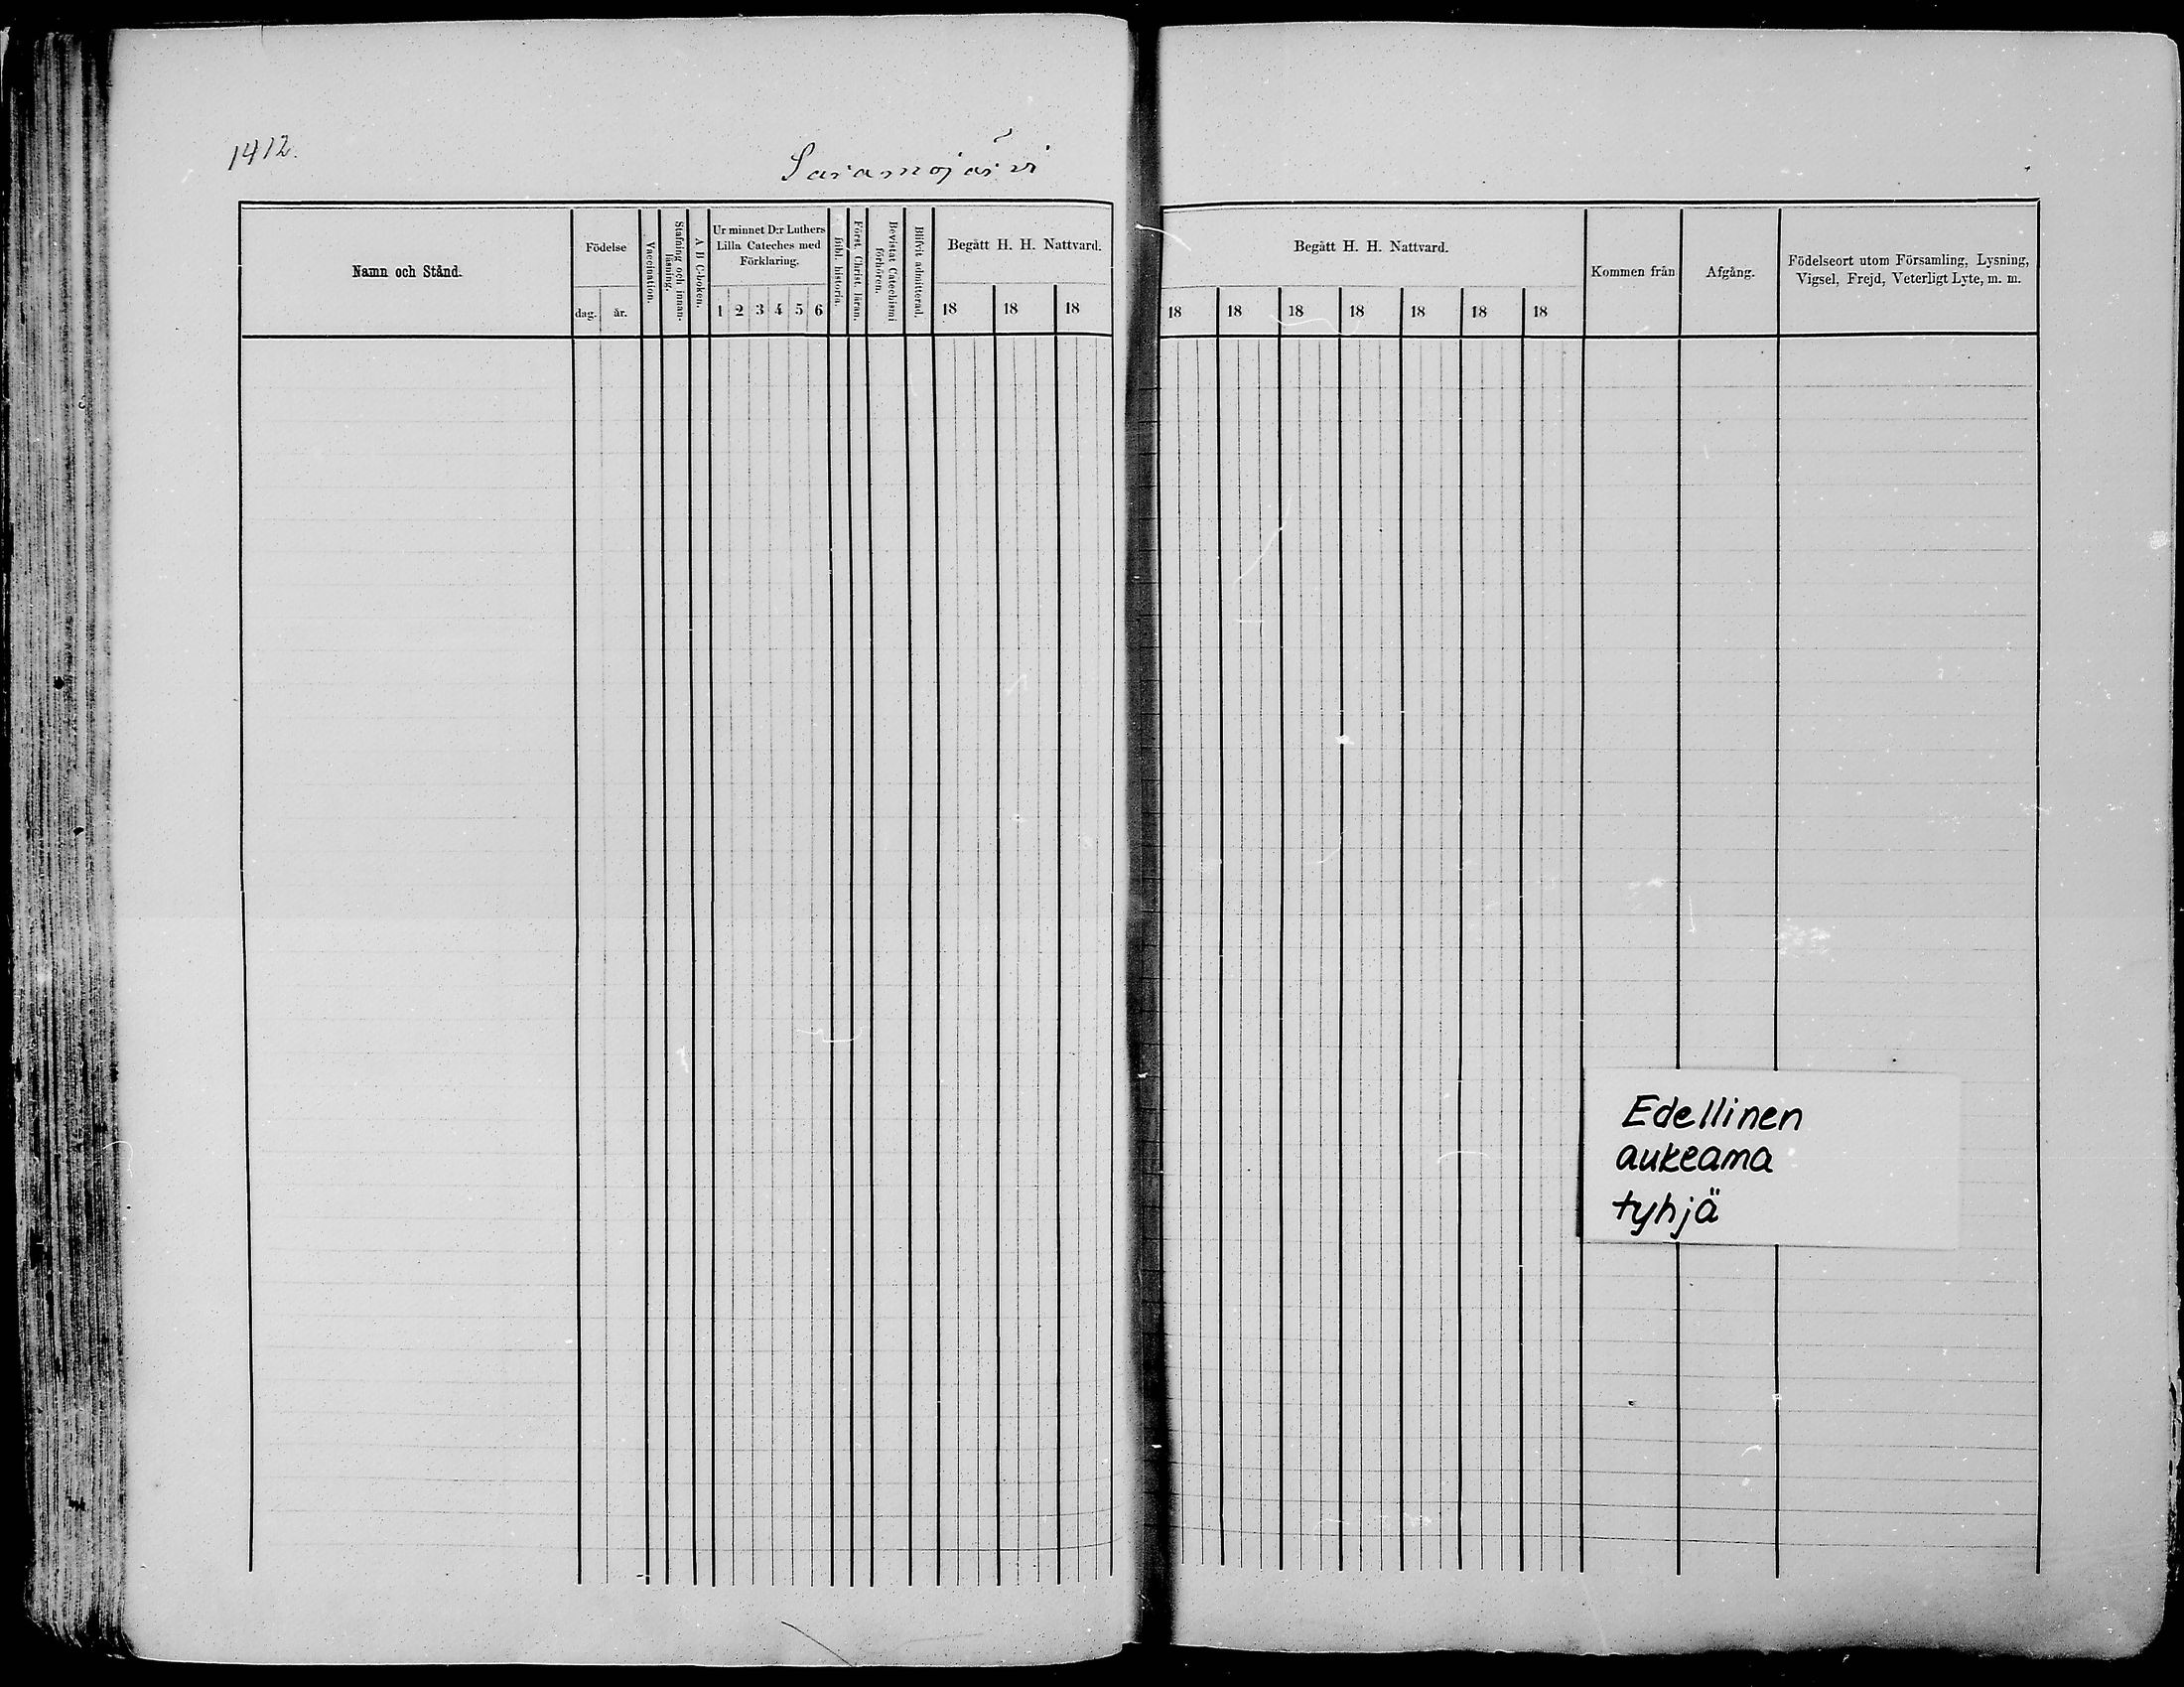 1412.
Saramojärvi
Namn och Stånd.
Födelse
dag.
år.
Vaccination.
Stafning och innan-
läsning.
A B C-boken.
Ur minnet D:r Luthers
Lilla Cateches med
Förklaring.
1 2 3 4 5 6
Bibl. historia.
Först. Christ. läran.
Bevistat Catechismi
förhören.
Blifvit admitterad.
Begått H. H. Nattvard.
18 18 18
Begått H. H. Nattvard.
18 18 18 18 18 18 18
Kommen från
Afgång.
Födelseort utom Församling, Lysning,
Vigsel, Frejd, Veterligt Lyte, m. m.
Edellinen
aukeama
tyhjä